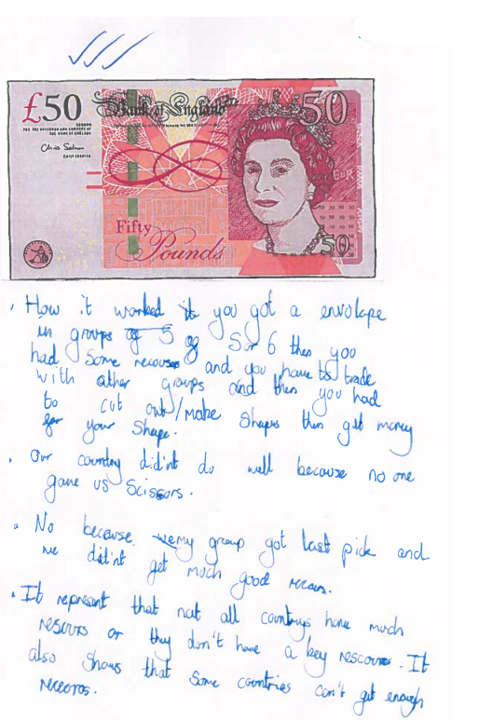 £50
Bank of England
50
Fifty
Pounds
50
• How it worked is you got a envolape
in groups of 5 or 6 then you
had some recouses and you have to trade
with other groups and then you had
to cut out/make shapes then get money
for your shape.
• Our country did'nt do well because no one
gave us scissors.
• No because my group got last pick and
we did'nt get much good
• It represent that not all countrys have much
resours or they don't have a key rescource. It
also shows that some countries can't get enough